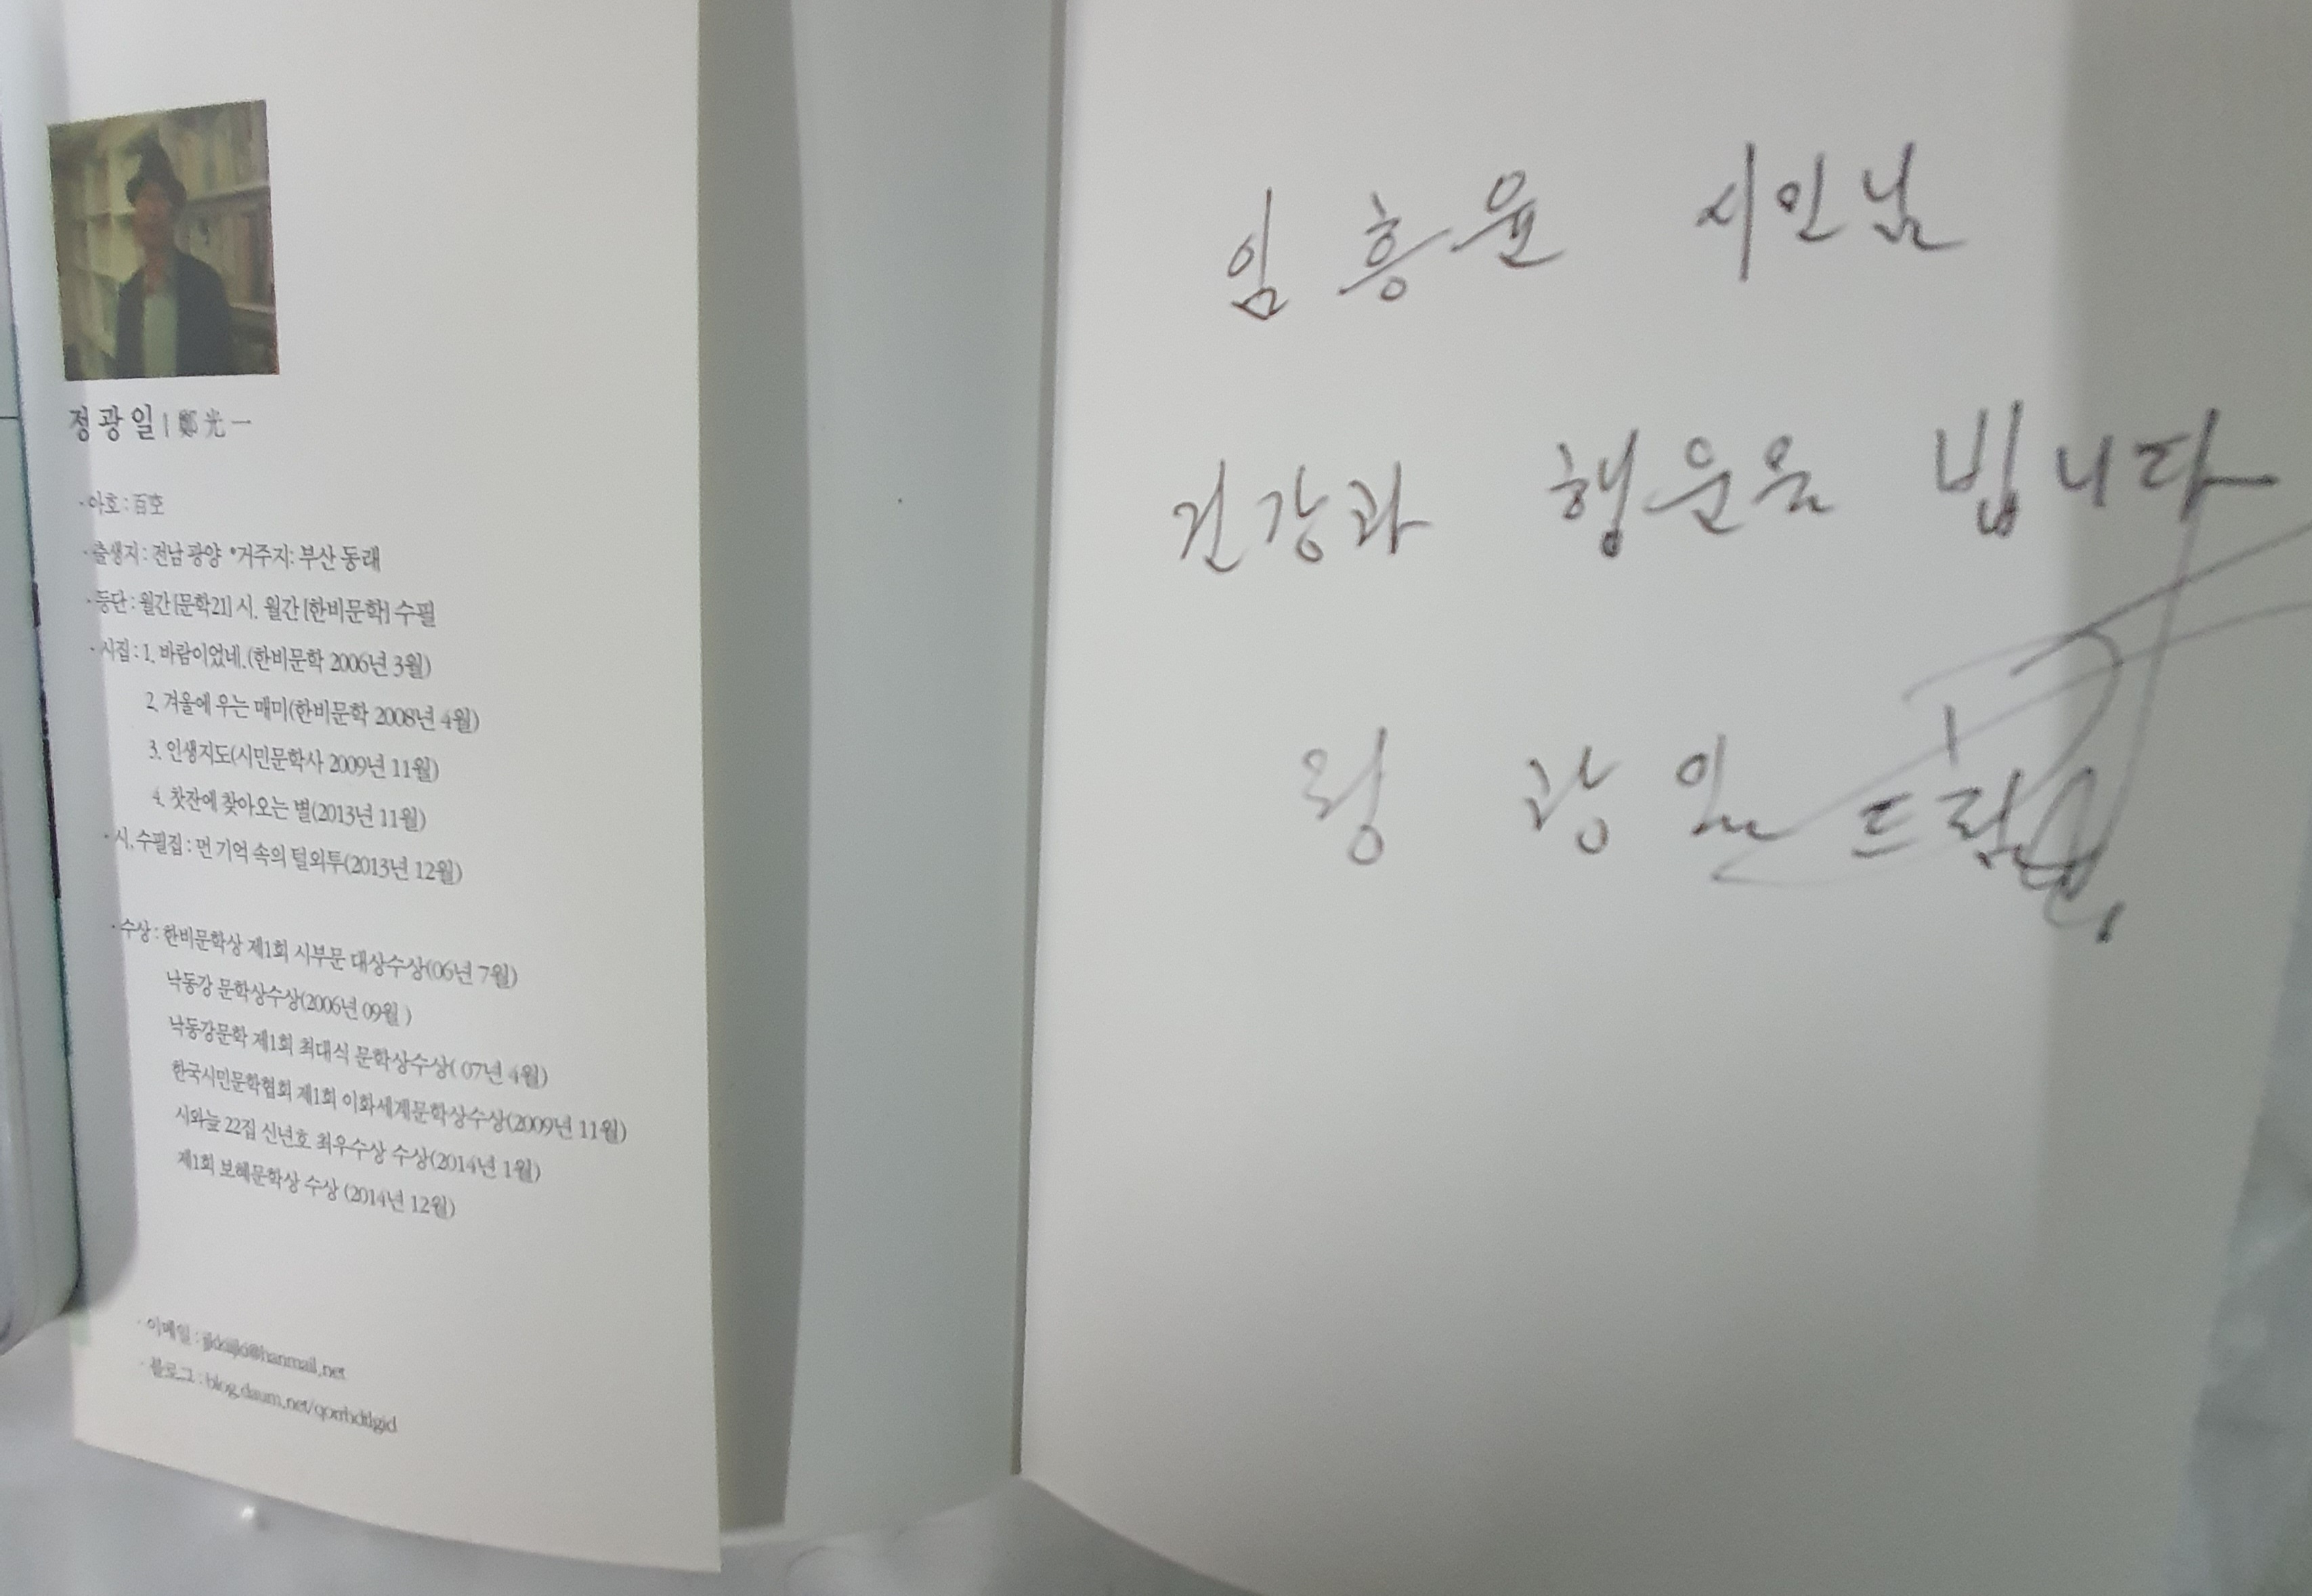 정광일 | 鄭光一
·아호 : 百호
·출생지 : 전남 광양 •거주지: 부산 동래
·등단 : 월간 [문학21] 시. 월간 [한비문학] 수필
·시집 : 1. 바람이었네.(한비문학 2006년 3월)
2. 겨울에 우는 매미(한비문학 2008년 4월)
3. 인생지도(시민문학사 2009년 11월)
4. 찻잔에 찾아오는 별(2013년 11월)
·시. 수필집 : 먼 기억 속의 털외투(2013년 12월)
·수상 : 한비문학상 제1회 시부문 대상수상(06년 7월)
낙동강 문학상수상(2006년 09월 )
낙동강문학 제1회 최대식 문학상수상( 07년 4월)
한국시민문학협회 제1회 이화세계문학상수상(2009년 11월)
시와늪 22집 신년호 최우수상 수상(2014년 1월)
제1회 보혜문학상 수상 (2014년 12월)
·이메일 :
·블로그 :
임흥윤 시인님
건강과 행운을 빕니다
정 광 일 드림